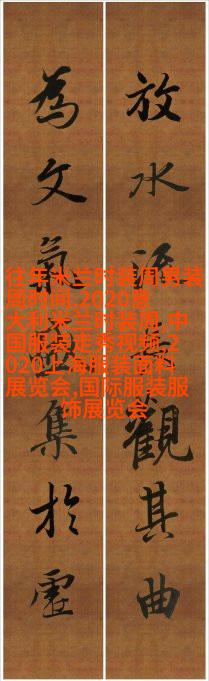 放水觀其曲
為文氣集於虛
往年米兰时装周男装
周时间,2020意
大利米兰时装周,中
国服装走秀视频,2
020上海服装面料
展览会,国际服装服
饰展览会